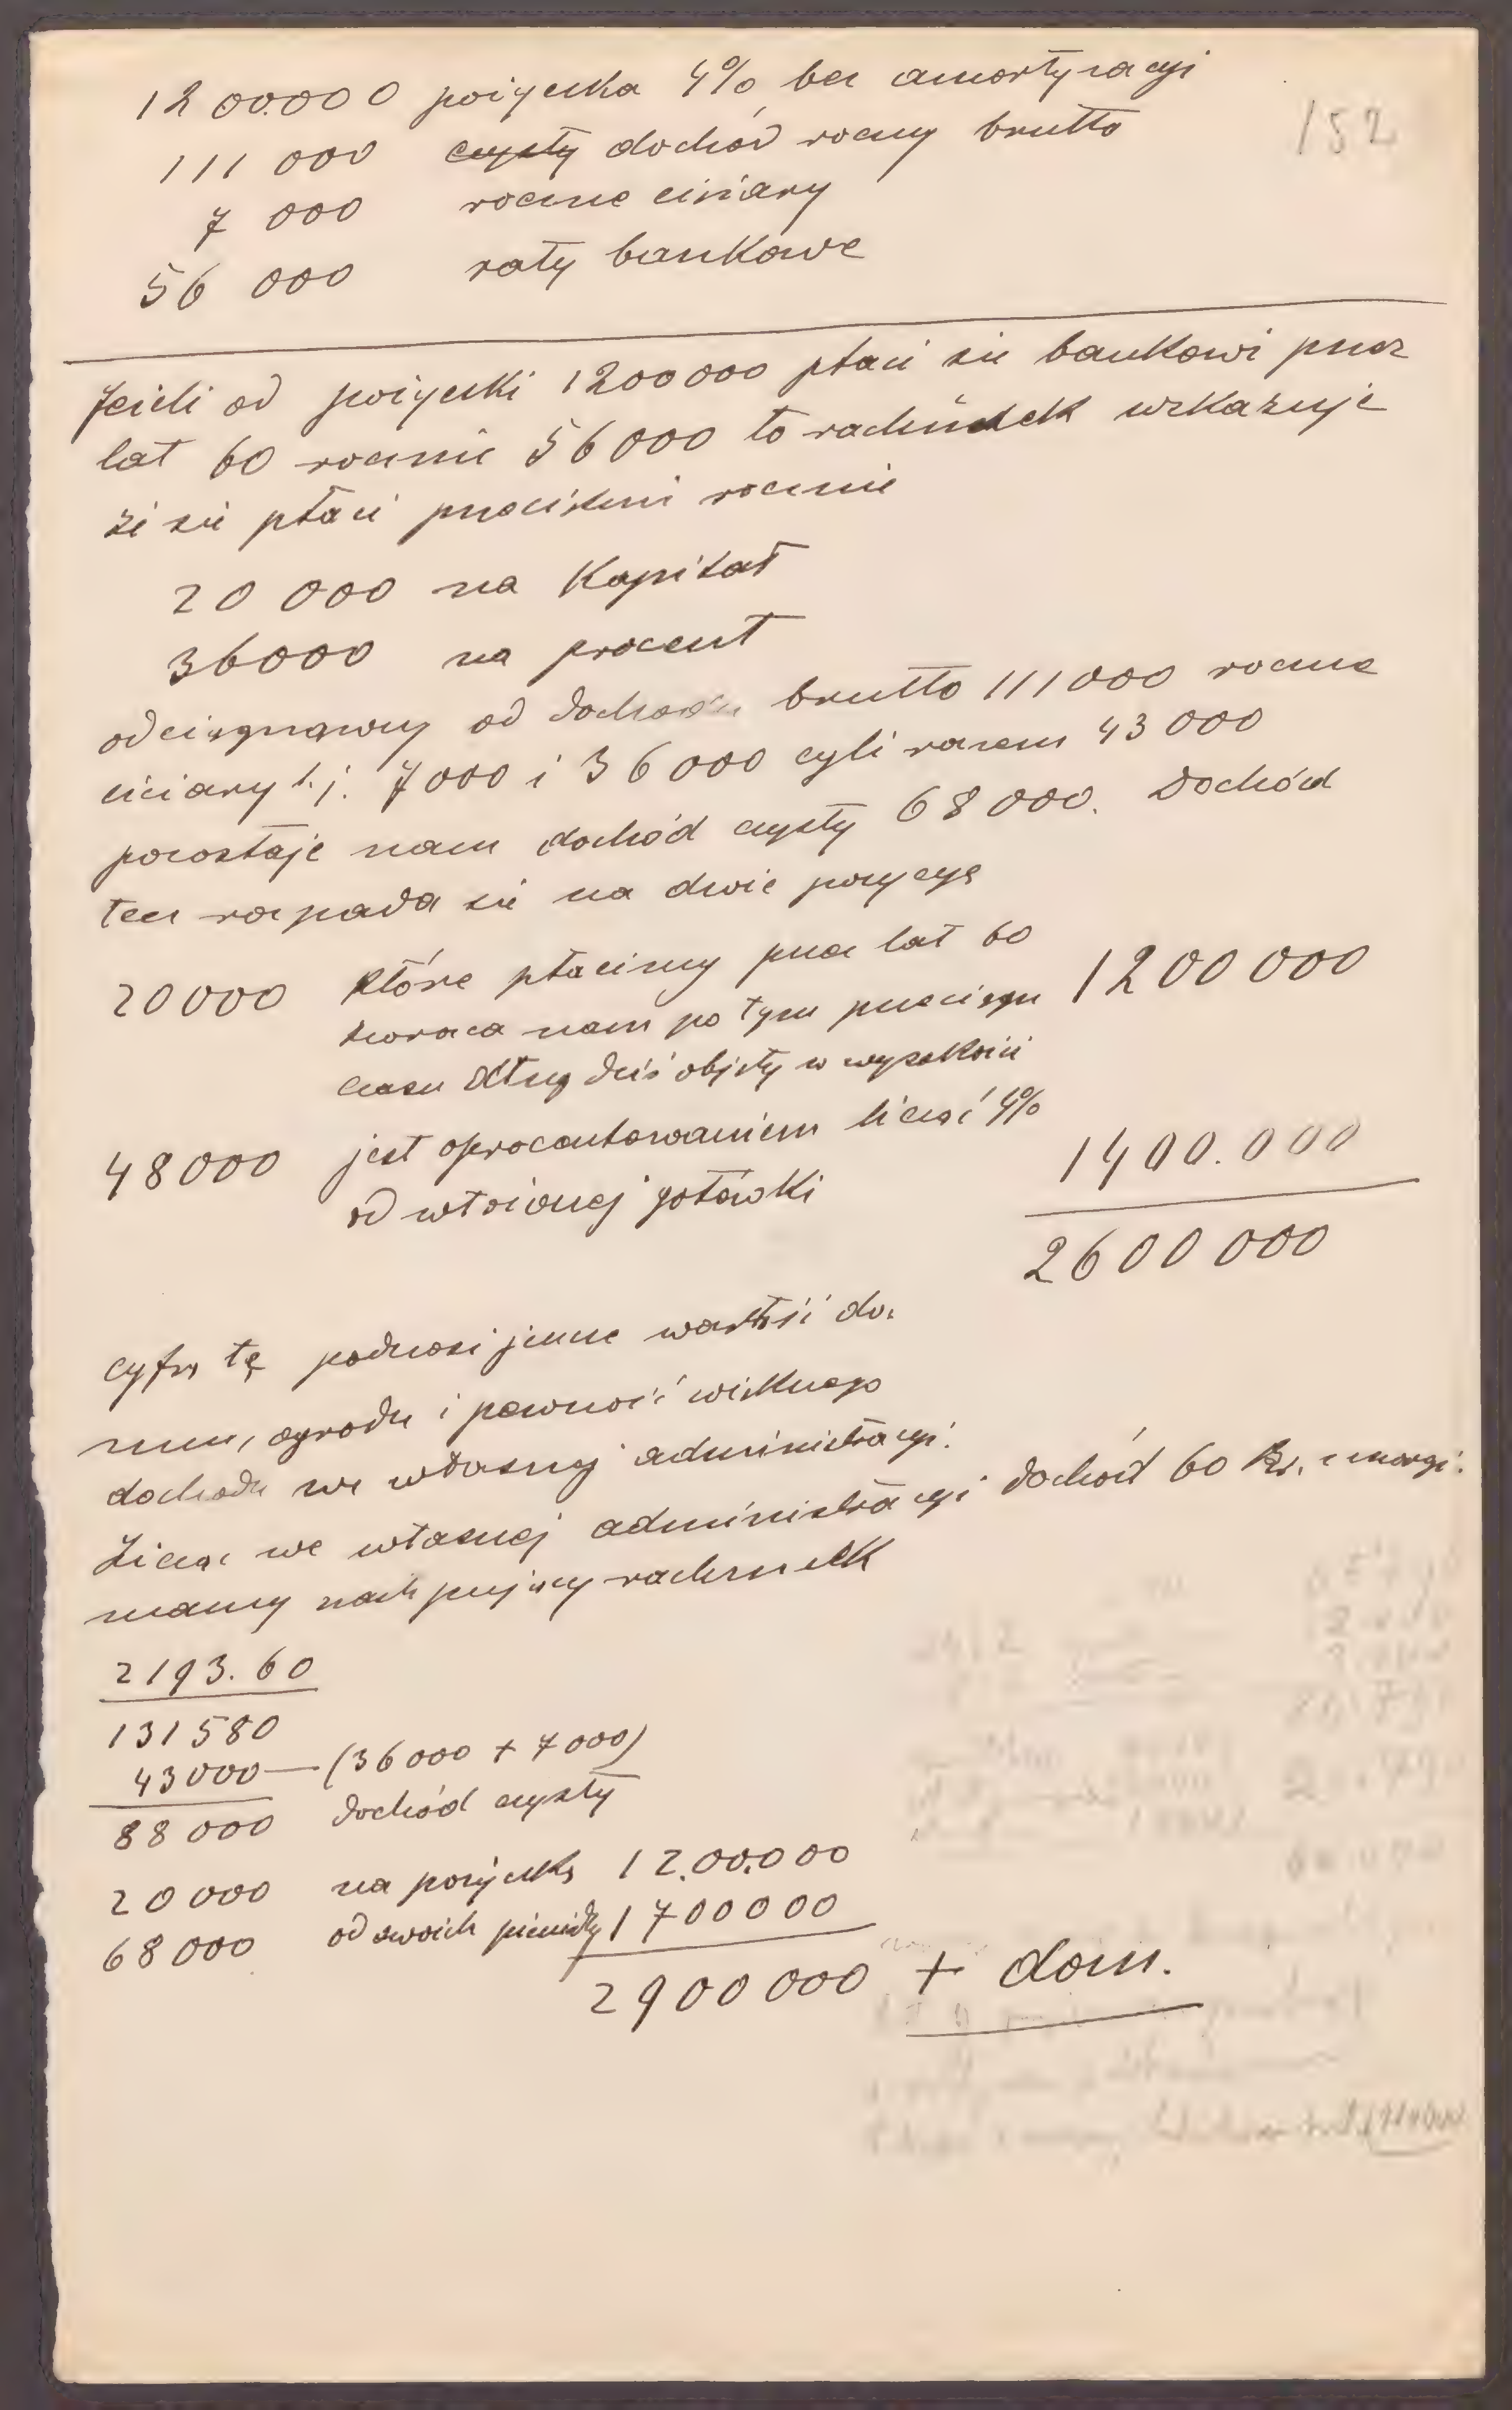 1200.000 pożyczka 4% bez amortyzacyi
152
111 000 czysty dochód roczny brutto
7 000 roczne ciężary
56 000 raty bankowe
Jeżeli od pożyczki 1200000 płaci się bankowi przez
lat 60 rocznie 56000 to rachunek wskazuje
że się płaci przeciętnie rocznie
20 000 na Kapitał
36000 na procent
odciągnąwszy od dochodu brutto 111000 roczne
ciężary t.j. 7000 i 36000 czyli razem 43000
pozostaje nam dochód czysty 68000. Dochód
ten rozpada się na dwie pozycye
20000 które płacimy przez lat 60
zwraca nam po tym przeciągu 1200000
czasu dług dziś objęty w wysokości
48000 jest oprocentowaniem licząc 4%
od włożonej gotówki 1400.000
2600000
cyfrę tę podnosi jeszcze wartość do-
mu, ogrodu i pewność większego
dochodu we własnej administracyi.
Licząc we własnej administracyi dochód 60 Kr. z morgi.
mamy następujący rachunek
2193.60
131580
43000 — (36000 + 7000)
88000 dochód czysty
20000 na pożyczkę 12.00.000
68000 od swoich pieniędzy 1700000
2900000 + dom.